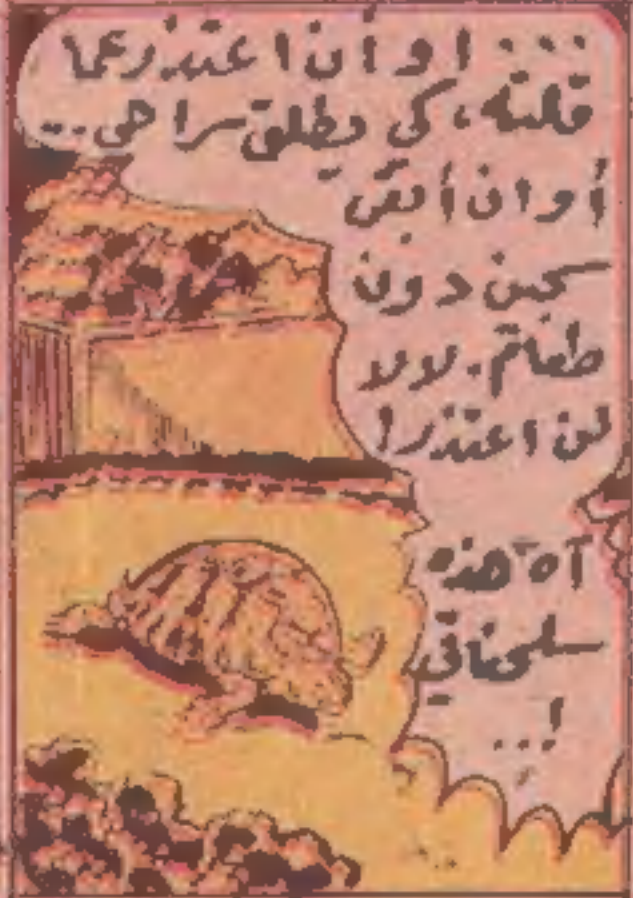 ... او أن اعتذر عما
قلته، كي يطلق سراحي...
أو ان أبقى
سجين دون
طعام. لا لا
لن اعتذر!
آه هذه
سلحفاتي
!...